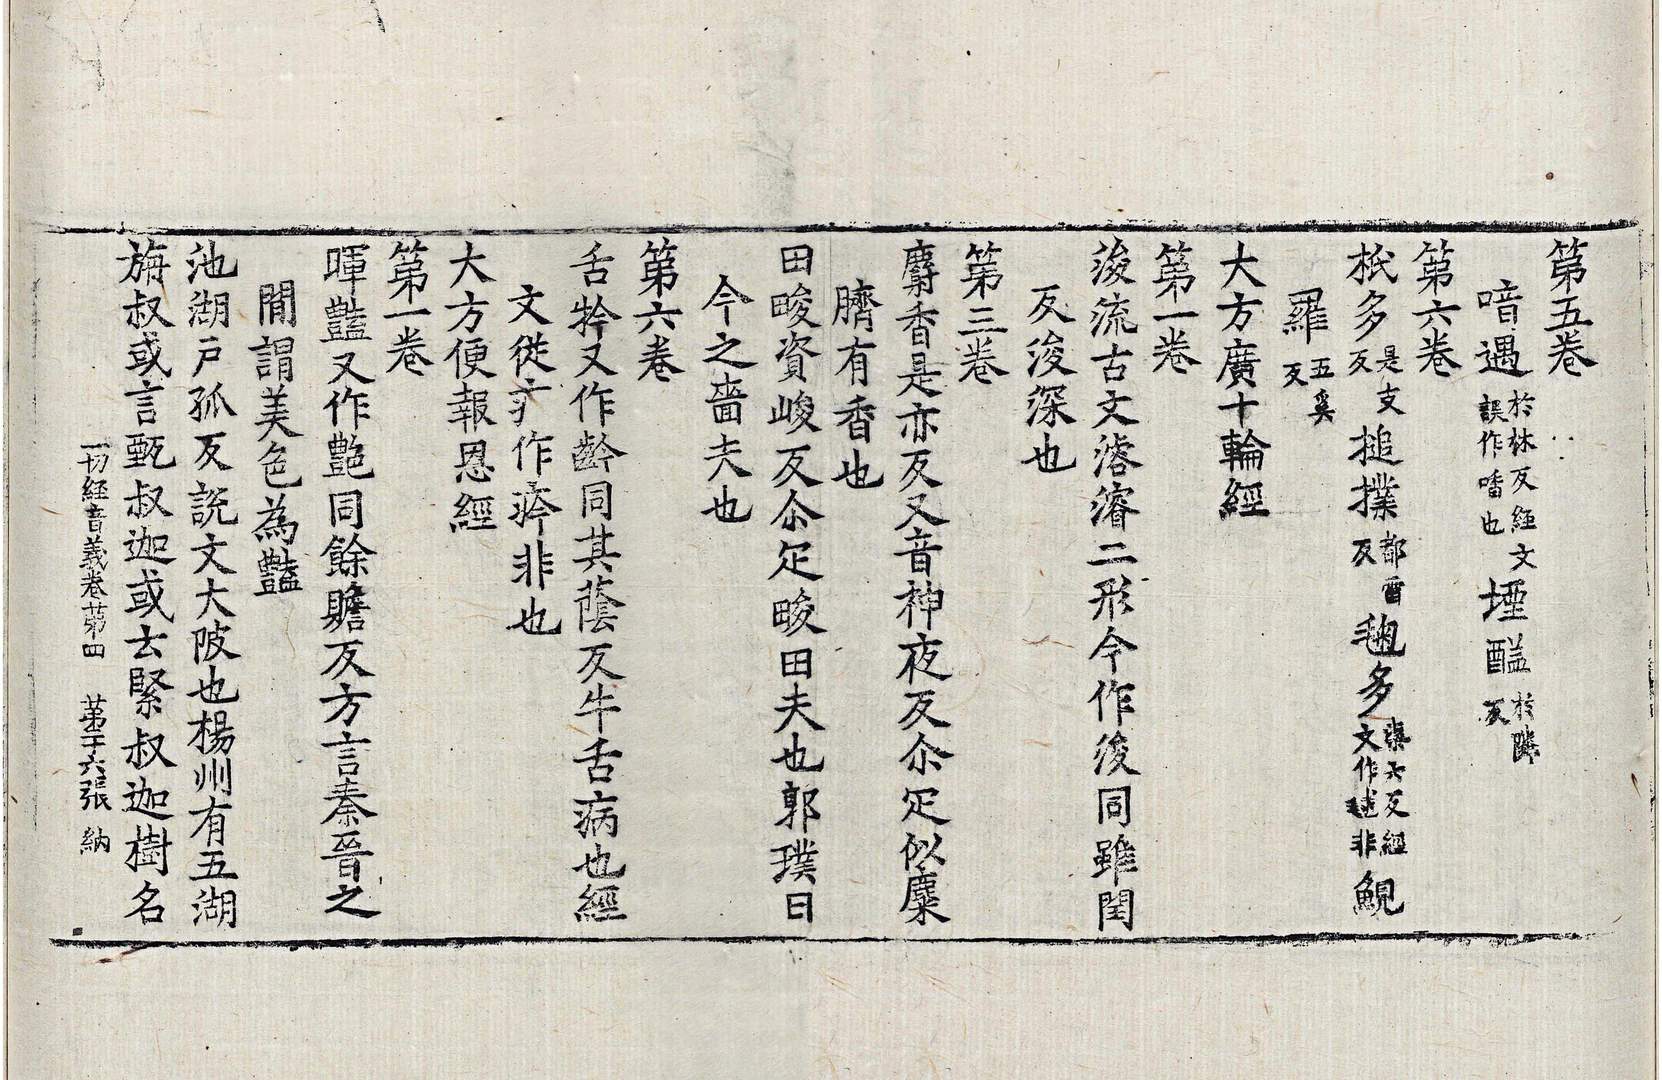 第五卷
喑遇於林反經文誤作噃也堙醢於隣反
第六卷
柢多是支反搥撲都回反毱多渠六反經文作逑非鯢
羅五奚反
大方廣十輪經
第一卷
浚流古文濬濬二形今作浚同雖閏
反浚深也
第三卷
麝香是亦反又音神夜反尒疋似麋
臍有香也
田畯資峻反尒疋畯田夫也郭璞曰
今之嗇夫也
第六卷
舌㸧又作齡同其蔭反牛舌病也經
文從疒作疼非也
大方便報恩經
第一卷
暉豔又作艶同餘贍反方言秦晉之
間謂美色為豔
池湖户孤反說文大陂也楊州有五湖
旃叔或言甄叔迦或云緊叔迦樹名
一切經音義卷第四 第二十六張 納